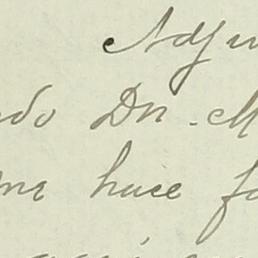 Adju
do Dn. M
me hace fa